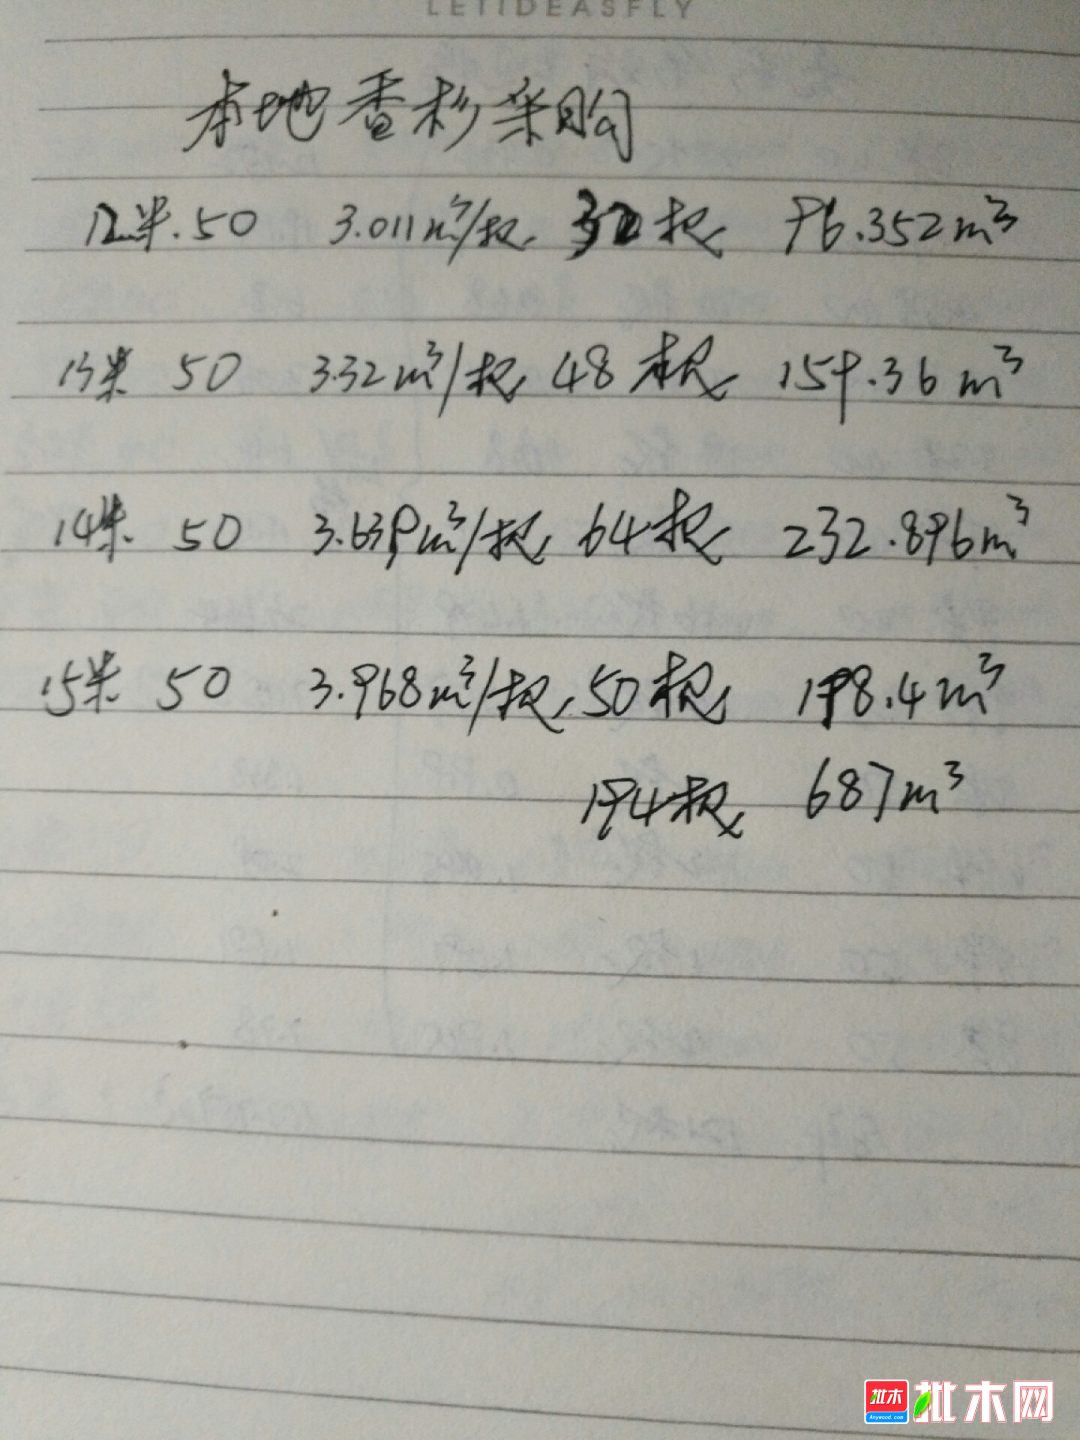 LETIDEASFLY
本地香杉采购
12米.50 3.011m³/根 32根 96.352m³
13米 50 3.32m³/根 48根 159.36m³
14米 50 3.639m³/根 64根 232.896m³
15米 50 3.968m³/根 50根 198.4m³
194根 687m³
批木 Anywood.com 批木网